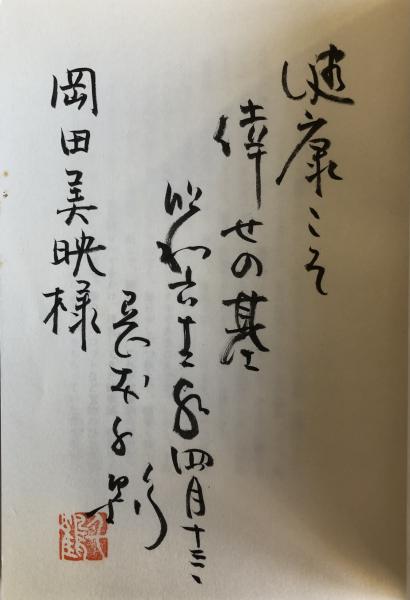 健康こそ
倖せの基
昭和六 年四月十三
岡田美映様